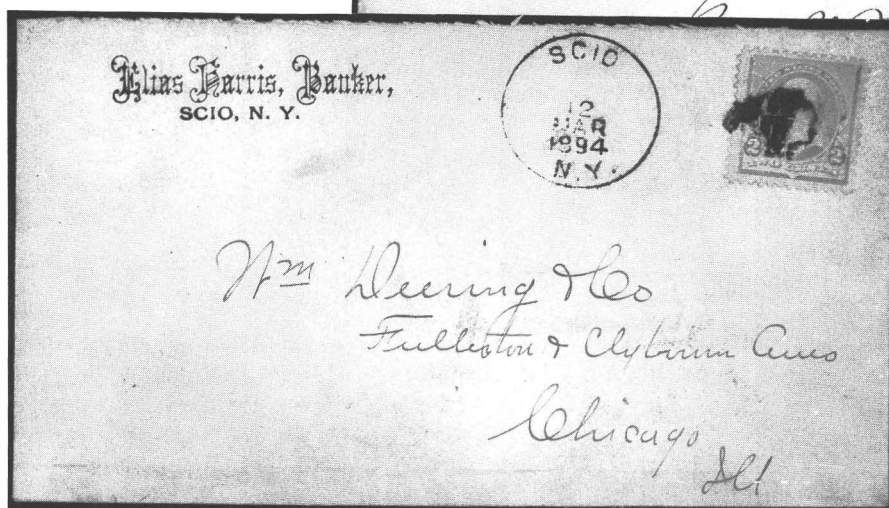 Elias Harris, Banker,
SCIO, N. Y.
SCIO
12
MAR
1894
N.Y.
2 2
Wm Deering & Co
Fullerton & Clybourn Aves
Chicago
Ill